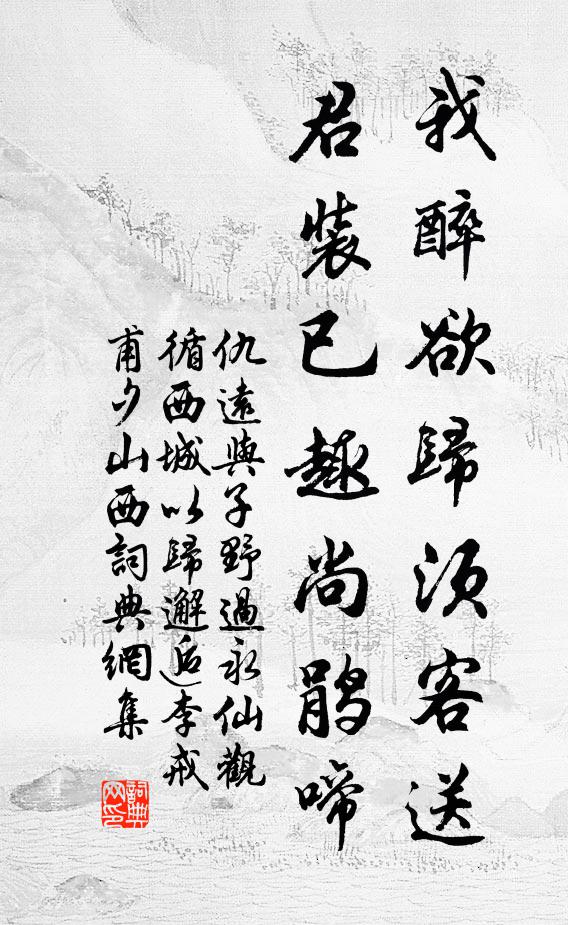 我醉欲歸須客送
君裝已趣尚鵑啼
仇遠與子野過永仙觀
循西城以歸邂逅李戒
甫夕山西詞典網集
詞典网印